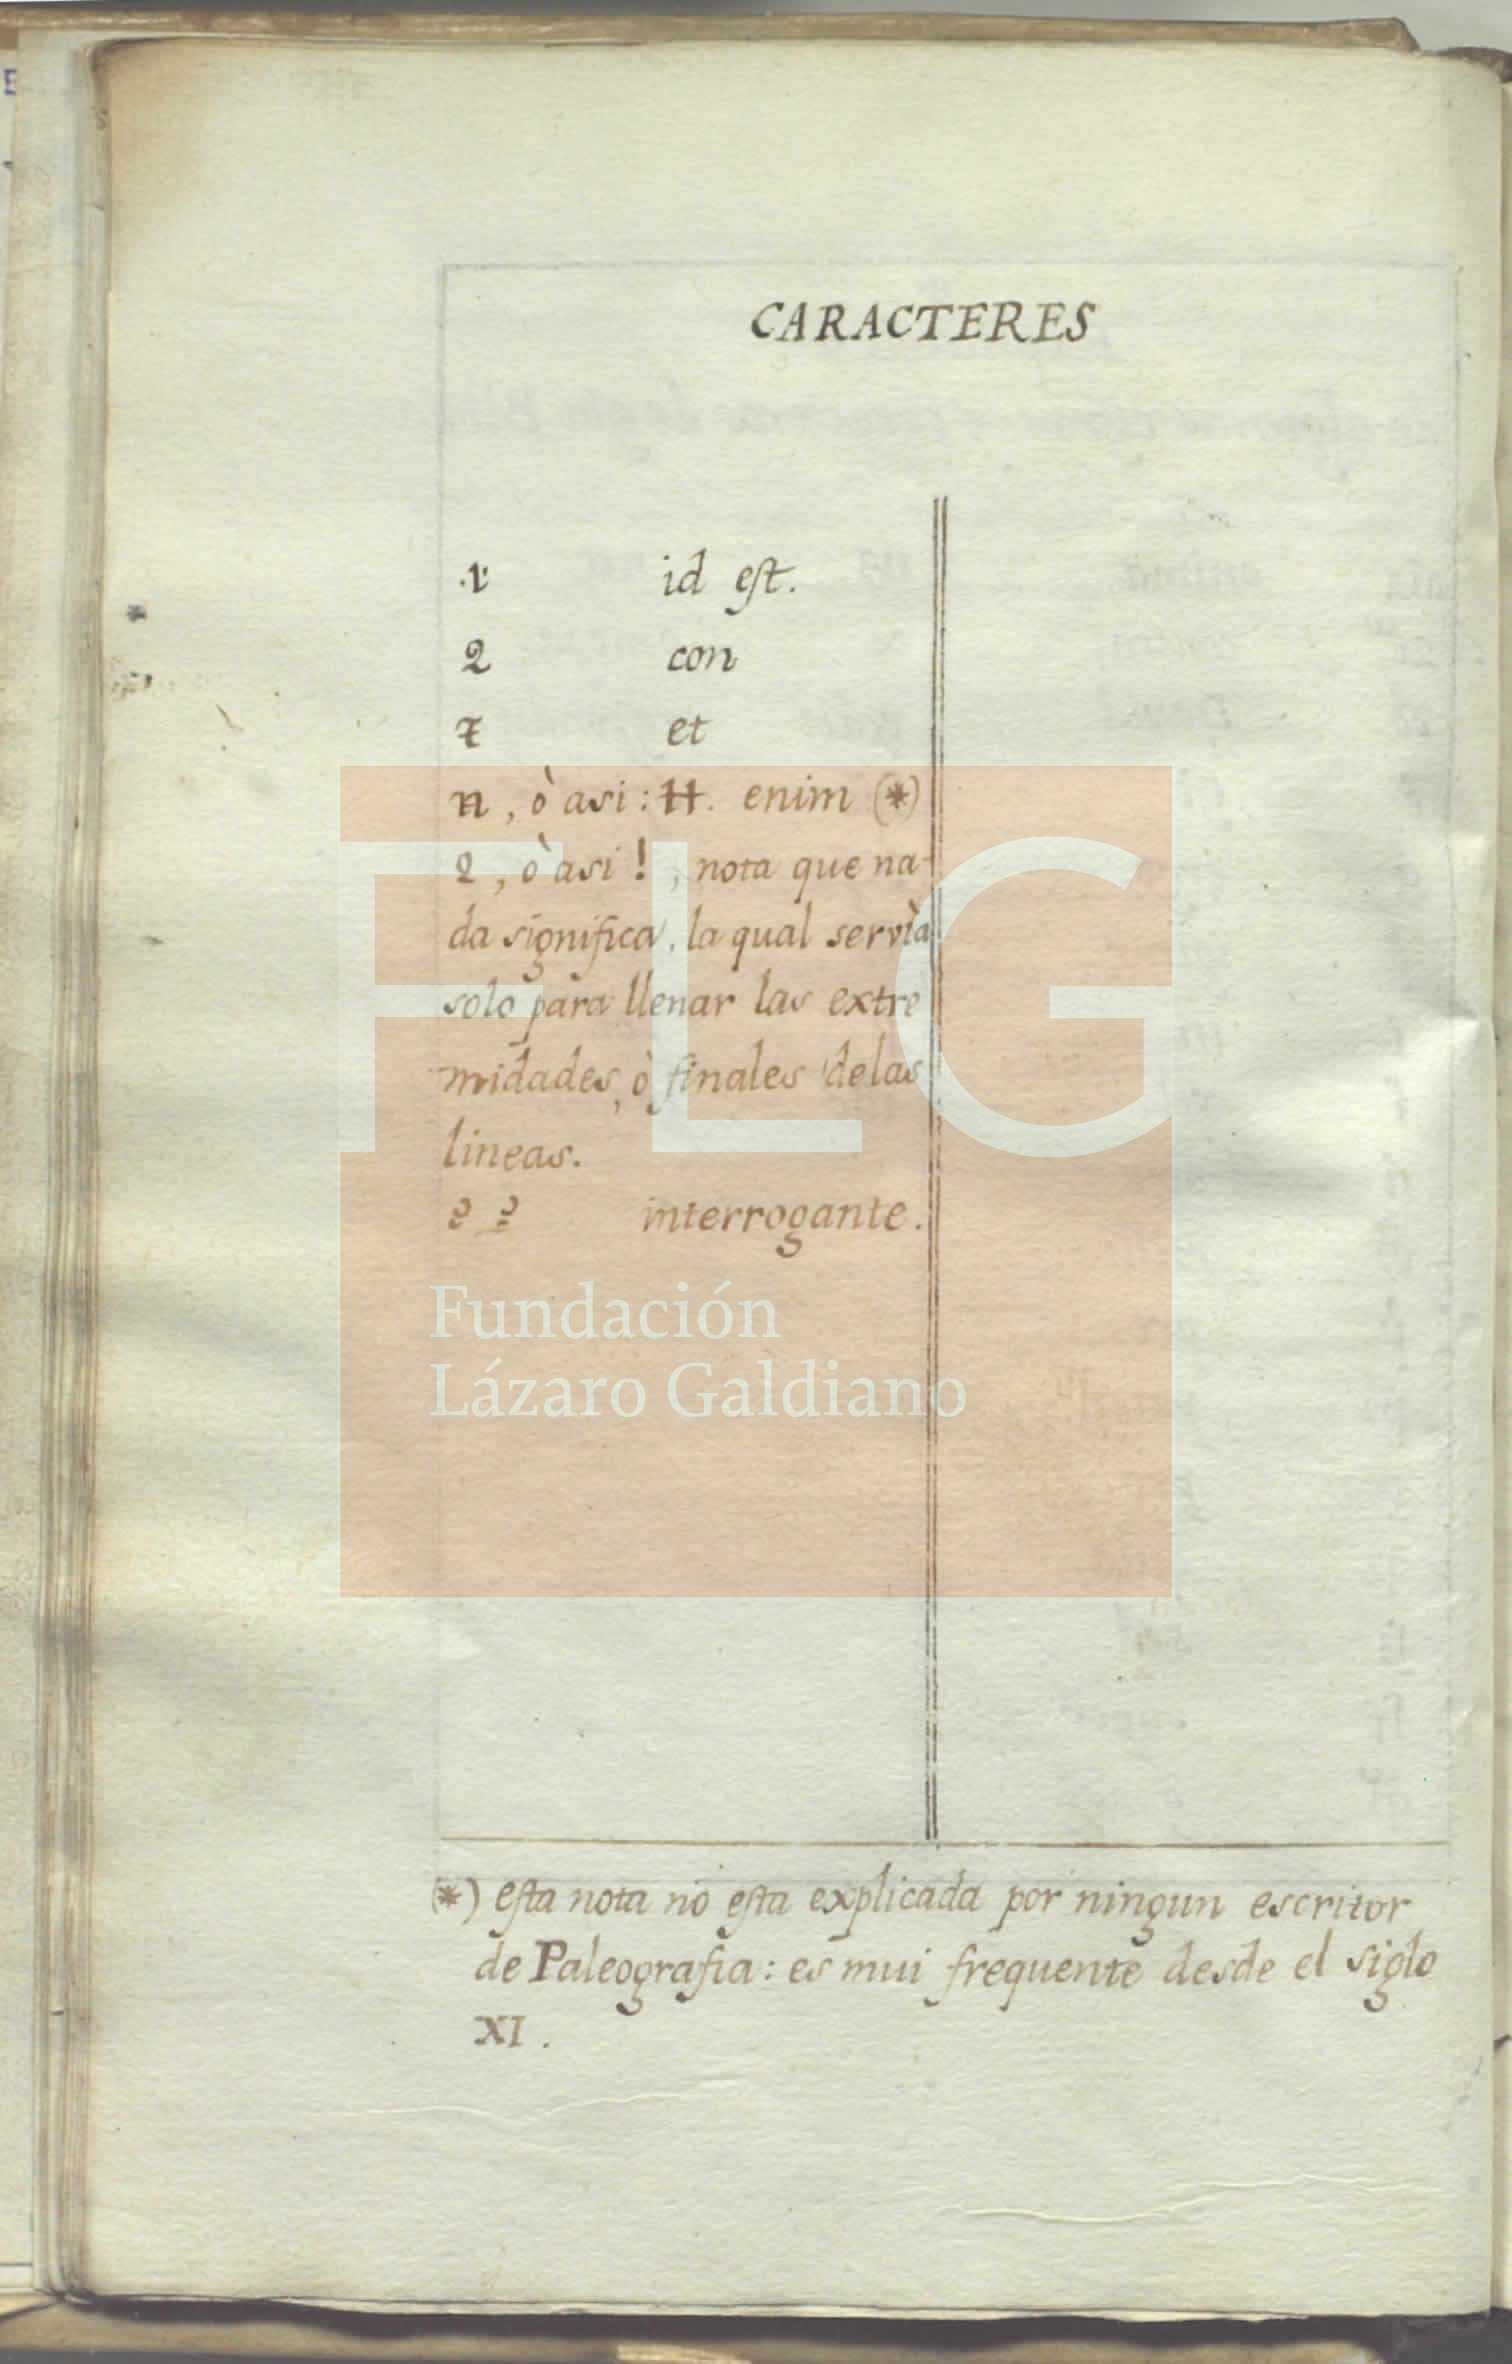 CARACTERES
·1· id est.
2 con
7 et
n, ò asi: H. enim (*)
2, ò asi !, nota que na-
da significa, la qual servìa
solo para llenar las extre
midades, ò finales de las
lineas.
interrogante.
Fundación
Lázaro Galdiano
FLG
(*) esta nota no esta explicada por ningun escritor
de Paleografia: es mui frequente desde el siglo
XI.